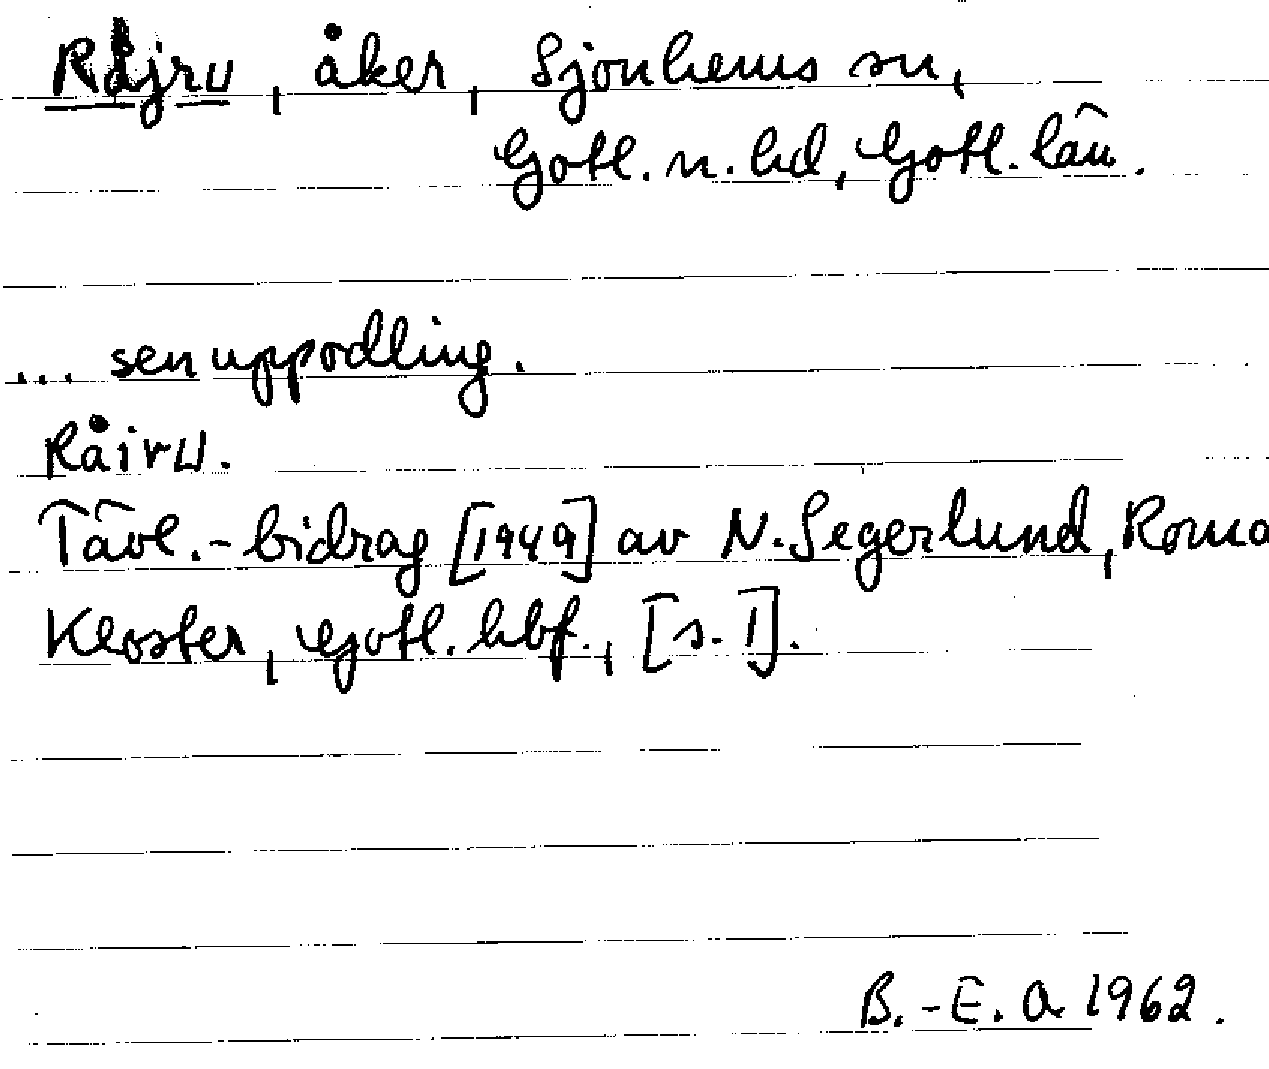 Råjru, åker, Sjonhems sn,
Gotl. n. hd, Gotl. län.
... sen uppodling.
Råiru.
Tävl.-bidrag [1949] av N. Segerlund, Roma
Kloster, Gotl. hbf., [s. 1].
B.-E. A 1962.